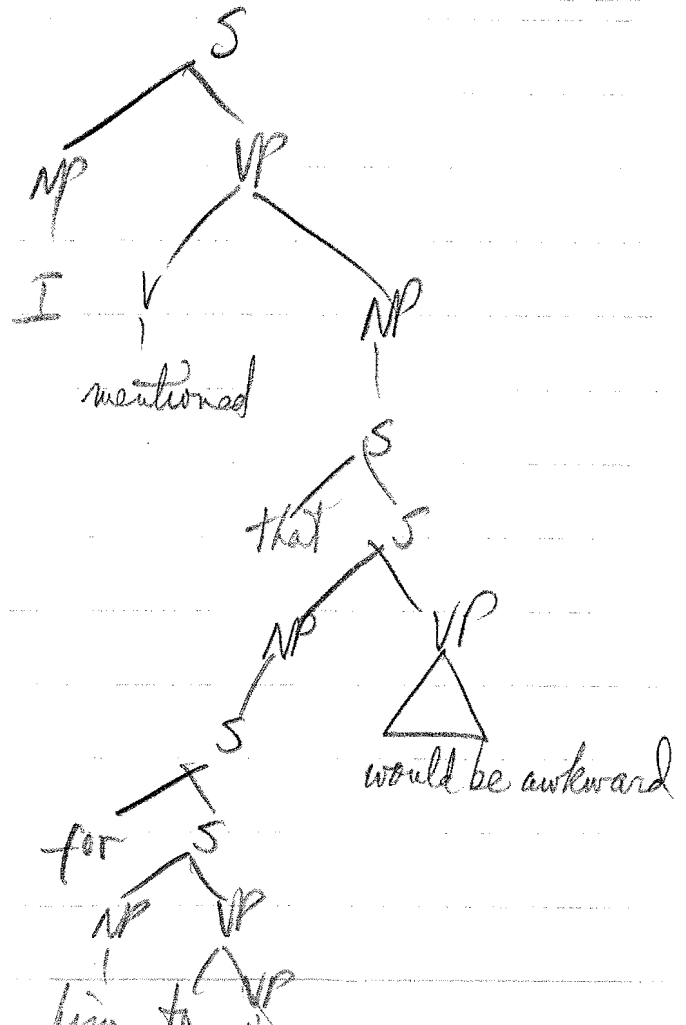 S
NP VP
I V NP
mentioned
S
that S
NP VP
S
would be awkward
for S
NP VP
him to VP